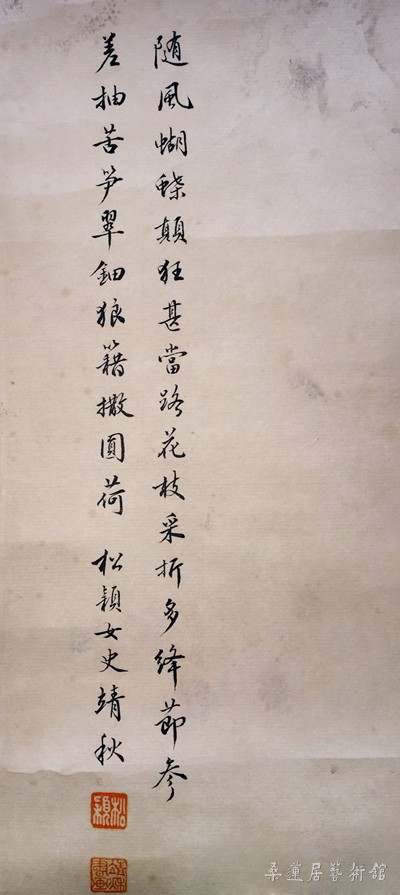 随風蝴蝶顛狂甚當路花枝采折多絳節參
差抽苦笋翠鈿狼籍撒圓荷 松穎女史靖秋
松穎
桑蓮居藝術館